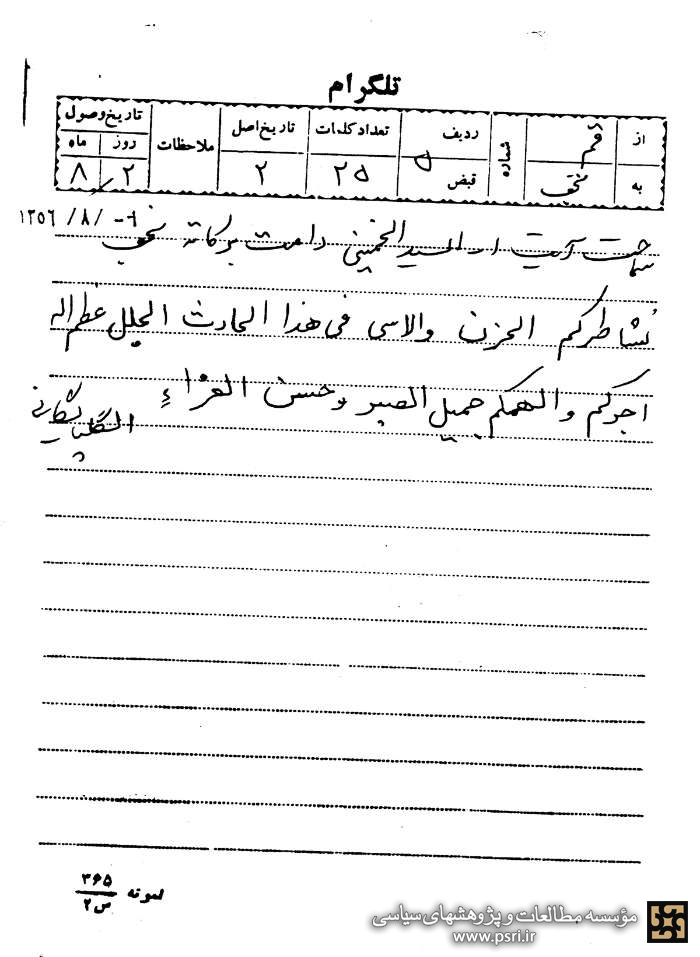 تلگرام
از قم شماره ردیف ۵ تعداد کلمات تاریخ اصل ملاحظات تاریخ وصول
روز ماه
به نجف قبض ۲۵ ۲ ۲ ۸
۱۳۵۶/۸/
سماحت آیت الله السید الخمینی دامت برکاته نجف
نشاطرکم الحزن والاسی فی هذا الحادث الجلل عظم الله
اجرکم والهمکم جمیل الصبر وحسن العزاء
الگلپایگانی
نمونه ۳۶۵
س۲
مؤسسه مطالعات و پژوهشهای سیاسی
www.psri.ir